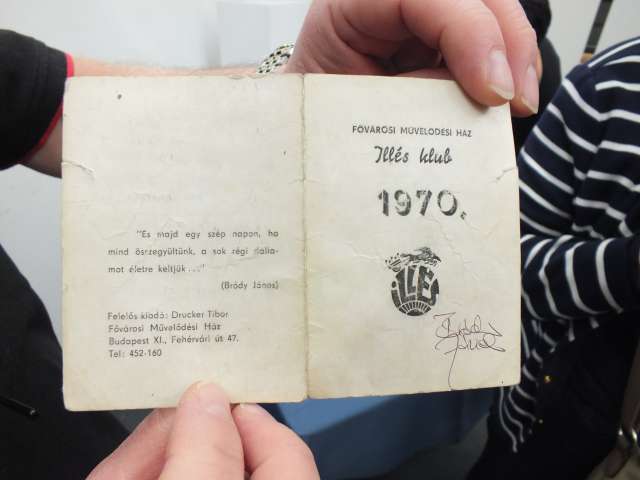 "És majd egy szép napon, ha
mind összegyűltünk, a sok régi dalla-
mot életre keltjük..."
(Bródy János)
Felelős kiadó: Drucker Tibor
Fővárosi Művelődési Ház
Budapest XI., Fehérvári út 47.
Tel: 452-160
FŐVÁROSI MŰVELŐDÉSI HÁZ
Illés klub
1970.
iLLÉS
Bródy
János